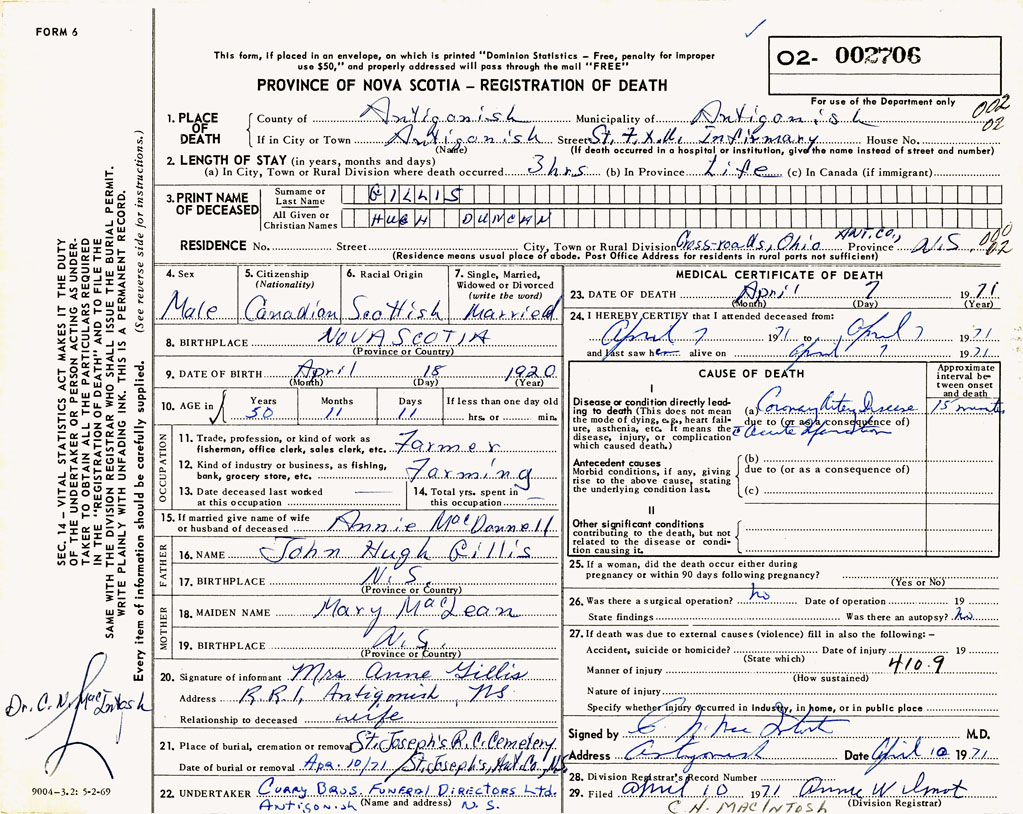 FORM 6
This form, if placed in an envelope, on which is printed "Dominion Statistics – Free, penalty for improper
use $50," and properly addressed will pass through the mail "FREE"
02- 002706
PROVINCE OF NOVA SCOTIA – REGISTRATION OF DEATH
For use of the Department only
002
02
1. PLACE OF DEATH
County of Antigonish Municipality of Antigonish
If in City or Town Antigonish Street St. F.X.U. Infirmary House No.
(Name) (If death occurred in a hospital or institution, give the name instead of street and number)
2. LENGTH OF STAY (in years, months and days)
(a) In City, Town or Rural Division where death occurred 3 hrs (b) In Province Life (c) In Canada (if immigrant)
3. PRINT NAME OF DECEASED
Surname or Last Name GILLIS
All Given or Christian Names HUGH DUNCAN
RESIDENCE No. Street City, Town or Rural Division Cross-roads, Ohio ANT. CO., Province N.S.
(Residence means usual place of abode. Post Office Address for residents in rural parts not sufficient)
4. Sex
Male
5. Citizenship
(Nationality)
Canadian
6. Racial Origin
Scottish
7. Single, Married,
Widowed or Divorced
(write the word)
Married
8. BIRTHPLACE NOVA SCOTIA
(Province or Country)
9. DATE OF BIRTH April 18 1920
(Month) (Day) (Year)
10. AGE in
Years Months Days If less than one day old
50 11 11 hrs. or min.
OCCUPATION
11. Trade, profession, or kind of work as
fisherman, office clerk, sales clerk, etc. Farmer
12. Kind of industry or business, as fishing,
bank, grocery store, etc. Farming
13. Date deceased last worked
at this occupation
14. Total yrs. spent in
this occupation
15. If married give name of wife
or husband of deceased Annie MacDonnell
FATHER
16. NAME John Hugh Gillis
17. BIRTHPLACE N.S.
(Province or Country)
MOTHER
18. MAIDEN NAME Mary MacLean
19. BIRTHPLACE N.S.
(Province or Country)
20. Signature of informant Mrs Anne Gillis
Address R.R.1, Antigonish, NS
Relationship to deceased wife
21. Place of burial, cremation or removal St. Joseph's R.C. Cemetery
Date of burial or removal Apr. 10/71 St. Joseph's, Ant. Co., N.S.
22. UNDERTAKER Curry Bros. Funeral Directors Ltd.
(Name and address) Antigonish N.S.
MEDICAL CERTIFICATE OF DEATH
23. DATE OF DEATH April 7 1971
(Month) (Day) (Year)
24. I HEREBY CERTIFY that I attended deceased from:
April 7 1971 to April 7 1971
and last saw h alive on April 7 1971
CAUSE OF DEATH
Approximate
interval be-
tween onset
and death
I
Disease or condition directly lead-
ing to death (This does not mean
the mode of dying, e.g., heart fail-
ure, asthenia, etc. It means the
disease, injury, or complication
which caused death.)
(a) Coronary Artery Disease 15 minutes
due to (or as a consequence of)
c Acute Infarction
Antecedent causes
Morbid conditions, if any, giving
rise to the above cause, stating
the underlying condition last.
(b)
due to (or as a consequence of)
(c)
II
Other significant conditions
contributing to the death, but not
related to the disease or condi-
tion causing it.
25. If a woman, did the death occur either during
pregnancy or within 90 days following pregnancy?
(Yes or No)
26. Was there a surgical operation? No Date of operation 19
State findings Was there an autopsy? No
27. If death was due to external causes (violence) fill in also the following: –
Accident, suicide or homicide? Date of injury 19
(State which)
410.9
Manner of injury
(How sustained)
Nature of injury
Specify whether injury occurred in industry, in home, or in public place
Signed by C. N. MacIntosh M.D.
Address Antigonish Date April 10 1971
28. Division Registrar's Record Number
29. Filed April 10 1971 Annie Wilmot
(Division Registrar)
C. N. MACINTOSH
SEC. 14 – VITAL STATISTICS ACT MAKES IT THE DUTY
OF THE UNDERTAKER OR PERSON ACTING AS UNDER-
TAKER TO OBTAIN ALL THE PARTICULARS REQUIRED
IN THE "REGISTRATION OF DEATH" AND TO FILE THE
SAME WITH THE DIVISION REGISTRAR WHO SHALL ISSUE THE BURIAL PERMIT.
WRITE PLAINLY WITH UNFADING INK. THIS IS A PERMANENT RECORD.
Every item of information should be carefully supplied. (See reverse side for instructions.)
Dr. C. N. MacIntosh
9004–3.2: 5-2-69